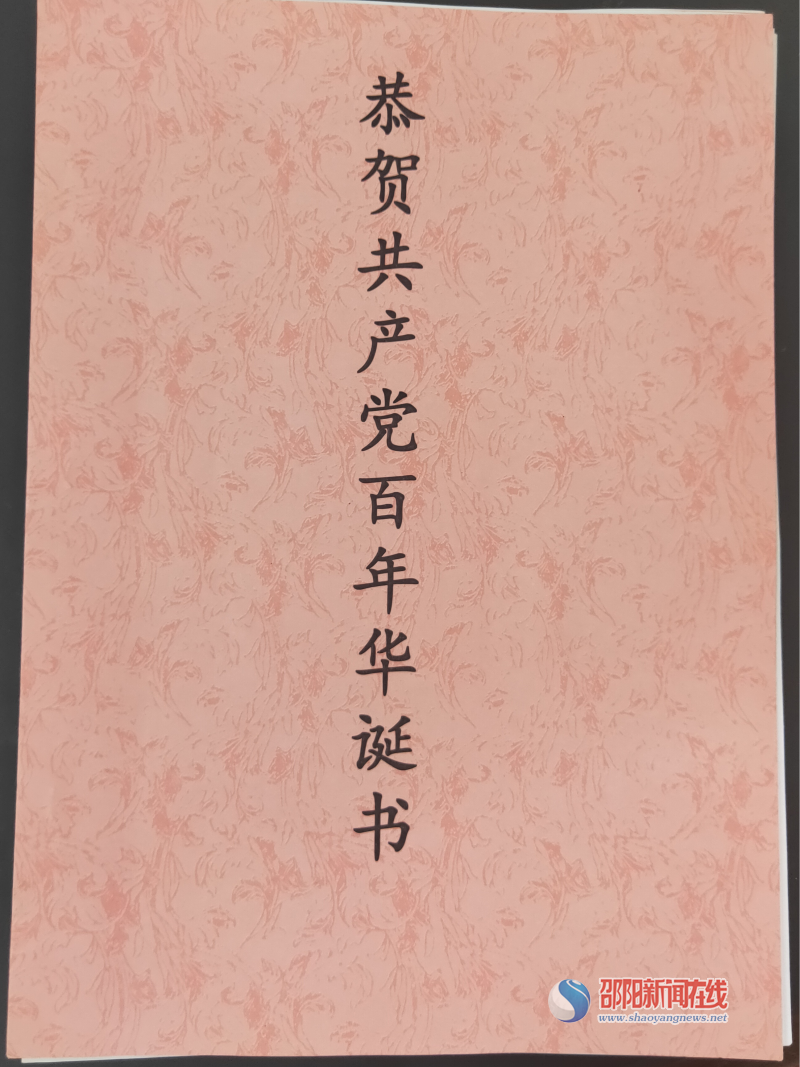 恭贺共产党百年华诞书
邵阳新闻在线
www.shaoyangnews.net